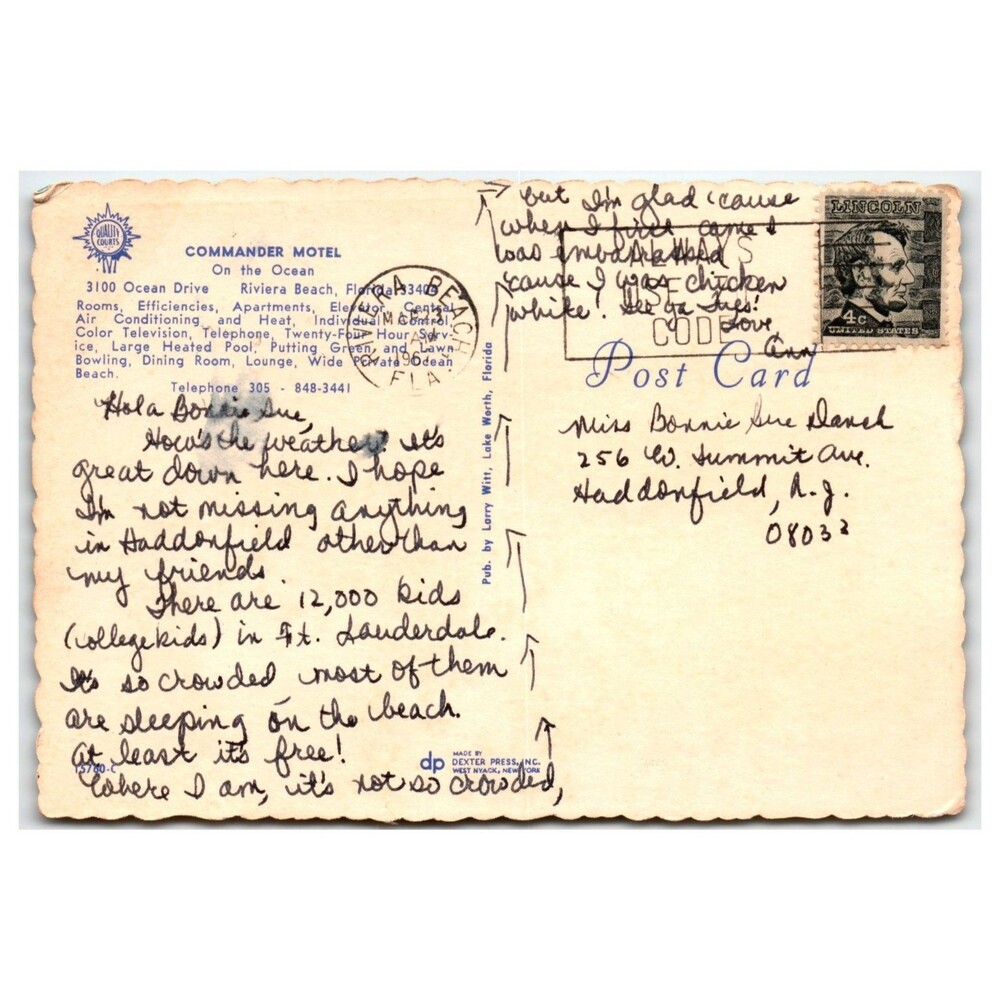 QUALITY
COURTS
COMMANDER MOTEL
On the Ocean
3100 Ocean Drive Riviera Beach, Florida 33404
Rooms, Efficiencies, Apartments, Elevator, Central
Air Conditioning and Heat, Individual Control,
Color Television, Telephone, Twenty-Four Hour Serv-
ice, Large Heated Pool, Putting Green, and Lawn
Bowling, Dining Room, Lounge, Wide Private Ocean
Beach.
Telephone 305 - 848-3441
Hola Bonnie Sue,
How's the weather? It's
great down here. I hope
I'm not missing anything
in Haddonfield other than
my friends.
There are 12,000 kids
(college kids) in Ft. Lauderdale.
It's so crowded most of them
are sleeping on the beach.
At least it's free!
Where I am, it's not so crowded,
but I'm glad 'cause
when I first came I
was embarrassed
'cause I was chicken
white! See ya Tues!
Love,
Ann
15760-C
dp
MADE BY
DEXTER PRESS, INC.
WEST NYACK, NEW YORK
Pub. by Larry Witt, Lake Worth, Florida
RIVIERA BEACH
FLA.
CODE
LINCOLN
4c
UNITED STATES
Post Card
Miss Bonnie Sue
256 W. Summit Ave.
Haddonfield, N.J.
08033